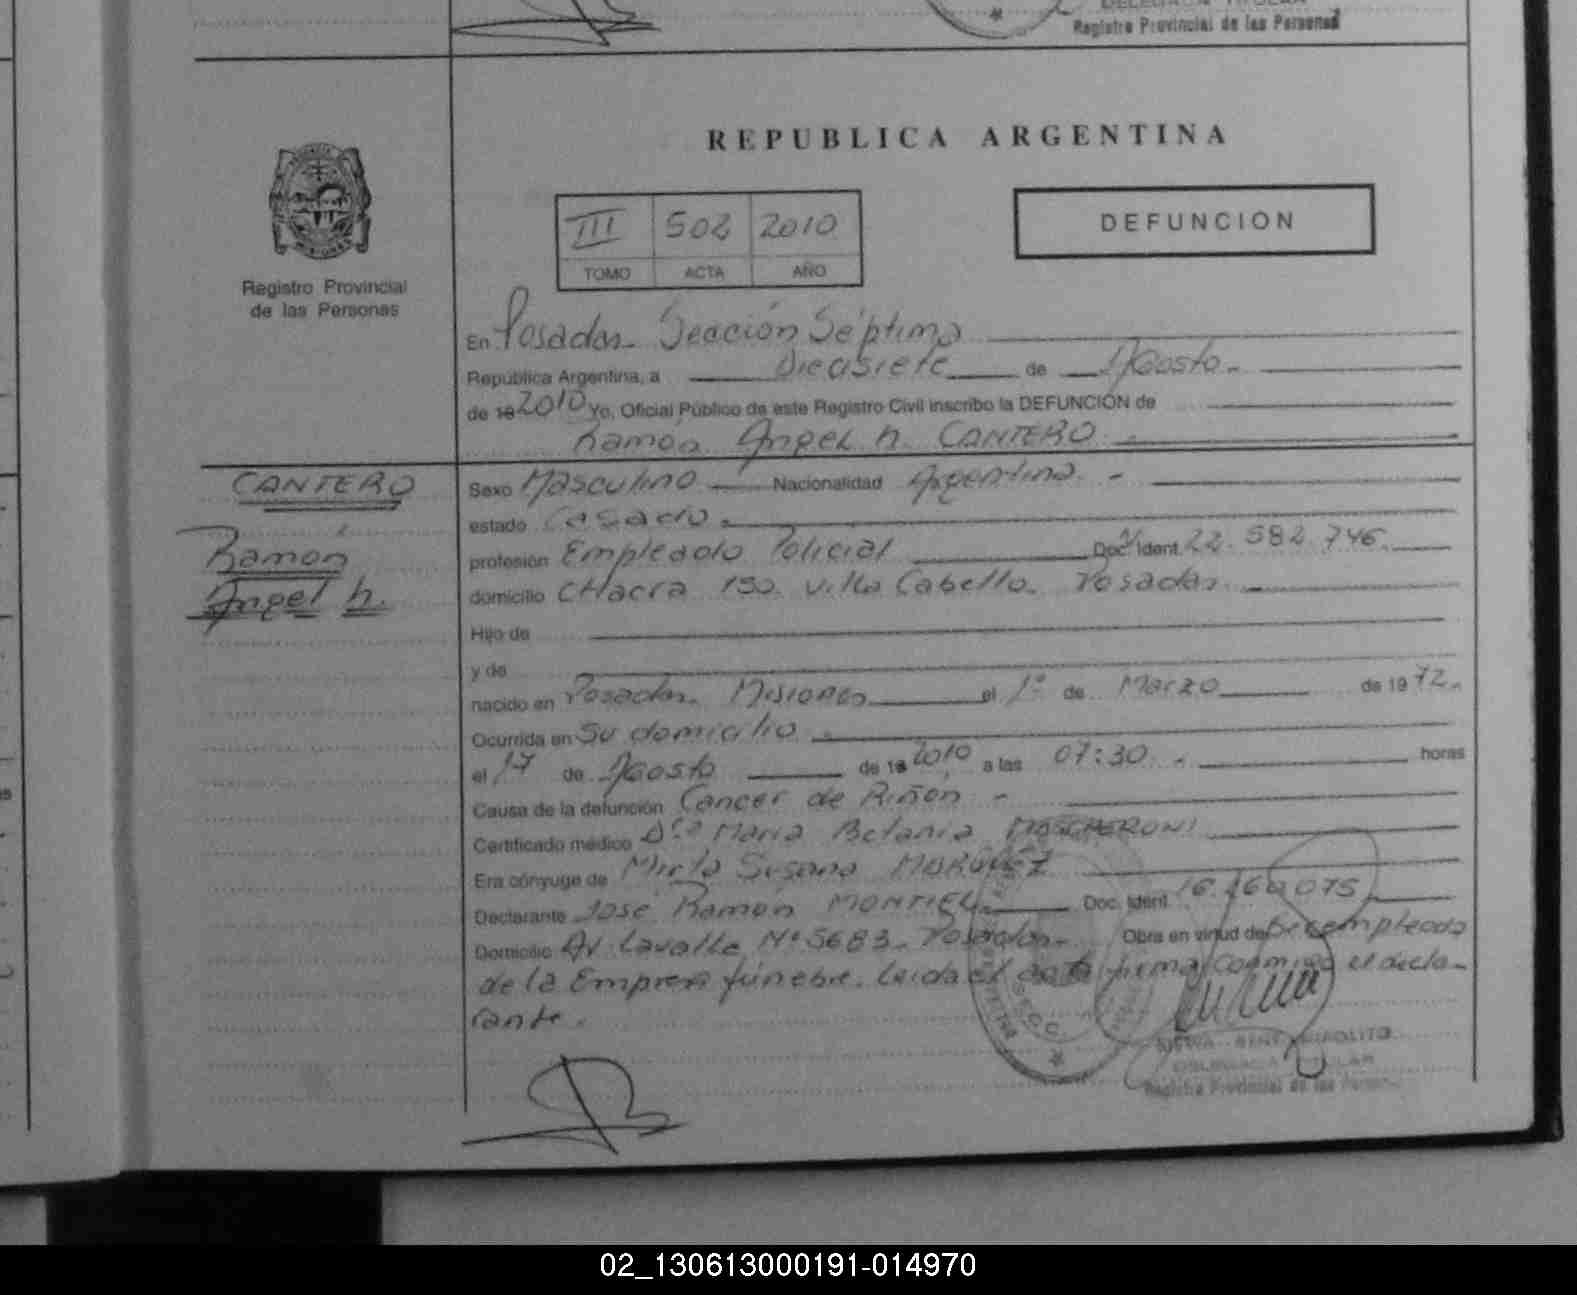 Registro Provincial de las Personas
REPUBLICA ARGENTINA
III 502 2010
TOMO ACTA AÑO
DEFUNCION
Registro Provincial
de las Personas
En Posadas Sección Séptima
República Argentina, a Diecisiete de Agosto.
de 19 2010 Yo, Oficial Público de este Registro Civil inscribo la DEFUNCIÓN de
Ramón Angel h. CANTERO
CANTERO
Ramón
Angel h.
Sexo Masculino Nacionalidad Argentina. -
estado Casado.
profesión Empleado Policial Doc. Ident. 22.582.746.
domicilio CHacra 150. Villa Cabello. Posadas.
Hijo de
y de
nacido en Posadas. Misiones el 1º de Marzo de 1972.
Ocurrida en Su domicilio.
el 17 de Agosto de 19 2010 a las 07:30. - horas
Causa de la defunción Cancer de Riñon -
Certificado médico Dra. Maria Betania MASCHERONI
Era cónyuge de Mirta Susana MARQUEZ
Declarante José Ramon MONTIEL. Doc. Ident. 16.460.075
Domicilio Av. Lavalle Nº 5683. Posadas. Obra en virtud de Ser empleado
de la Empresa fúnebre. Leida el acta firma conmigo el decla-
rante.
DELEGADA TITULAR
Registro Provincial de las Personas
02_130613000191-014970